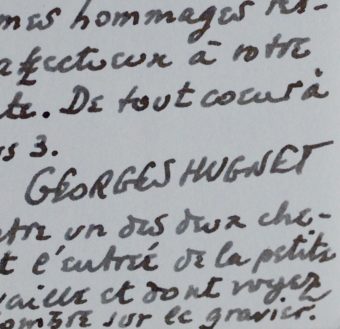 mes hommages res-
affectueux à votre
te. De tout coeur à
s 3.
GEORGES HUGNET
tre un des deux che-
t l'entrée de la petite
vaille et dont voyez
ombre sur le gravier.